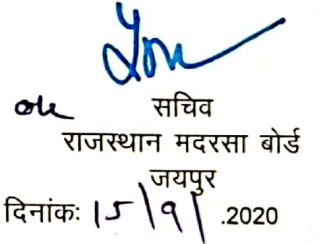 सचिव
राजस्थान मदरसा बोर्ड
जयपुर
दिनांकः 15/9/.2020